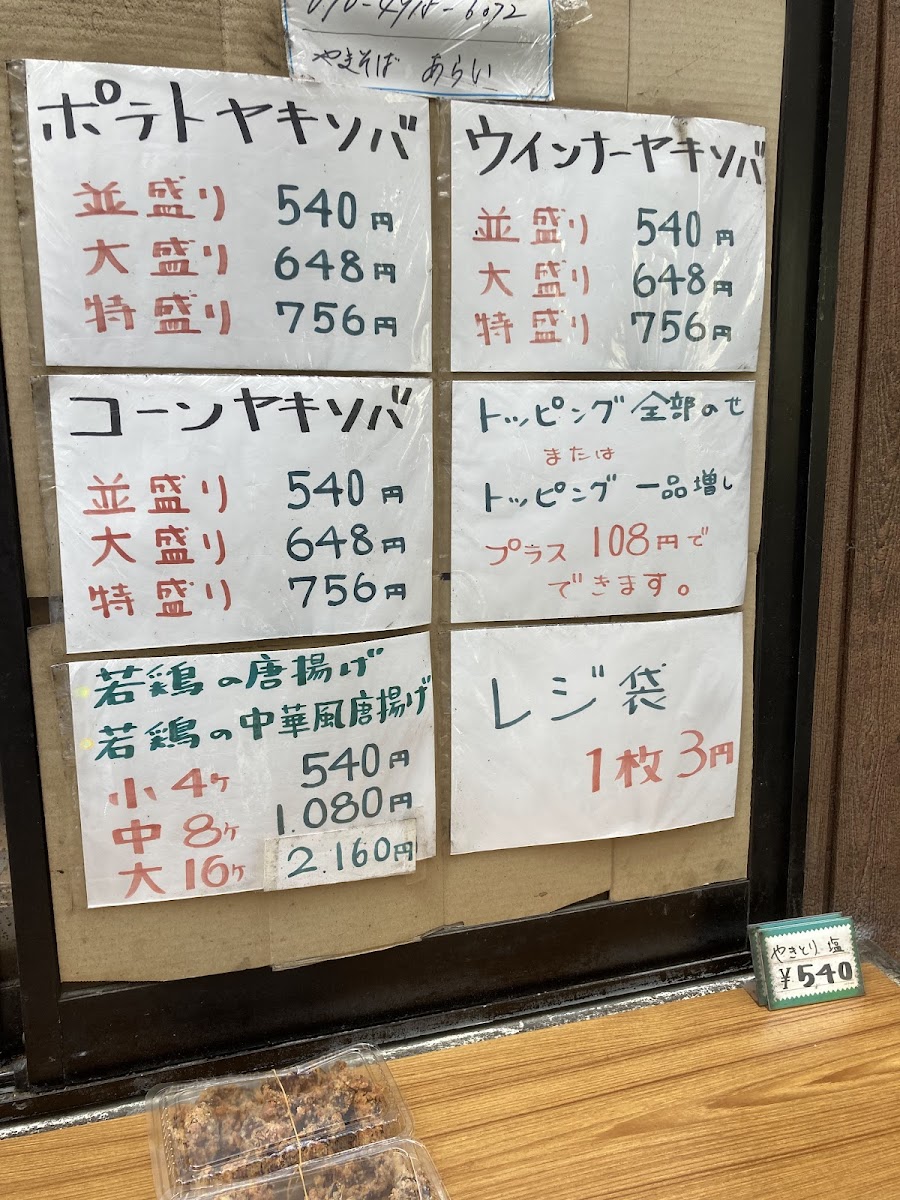 やきそば あらい
ポテトヤキソバ
並盛り 540円
大盛り 648円
特盛り 756円
ウインナーヤキソバ
並盛り 540円
大盛り 648円
特盛り 756円
コーンヤキソバ
並盛り 540円
大盛り 648円
特盛り 756円
トッピング 全部のせ
または
トッピング 一品増し
プラス 108円で
できます。
若鶏の唐揚げ
若鶏の中華風唐揚げ
小 4ヶ 540円
中 8ヶ 1.080円
大 16ヶ 2.160円
レジ袋
1枚 3円
やきとり 塩
¥540